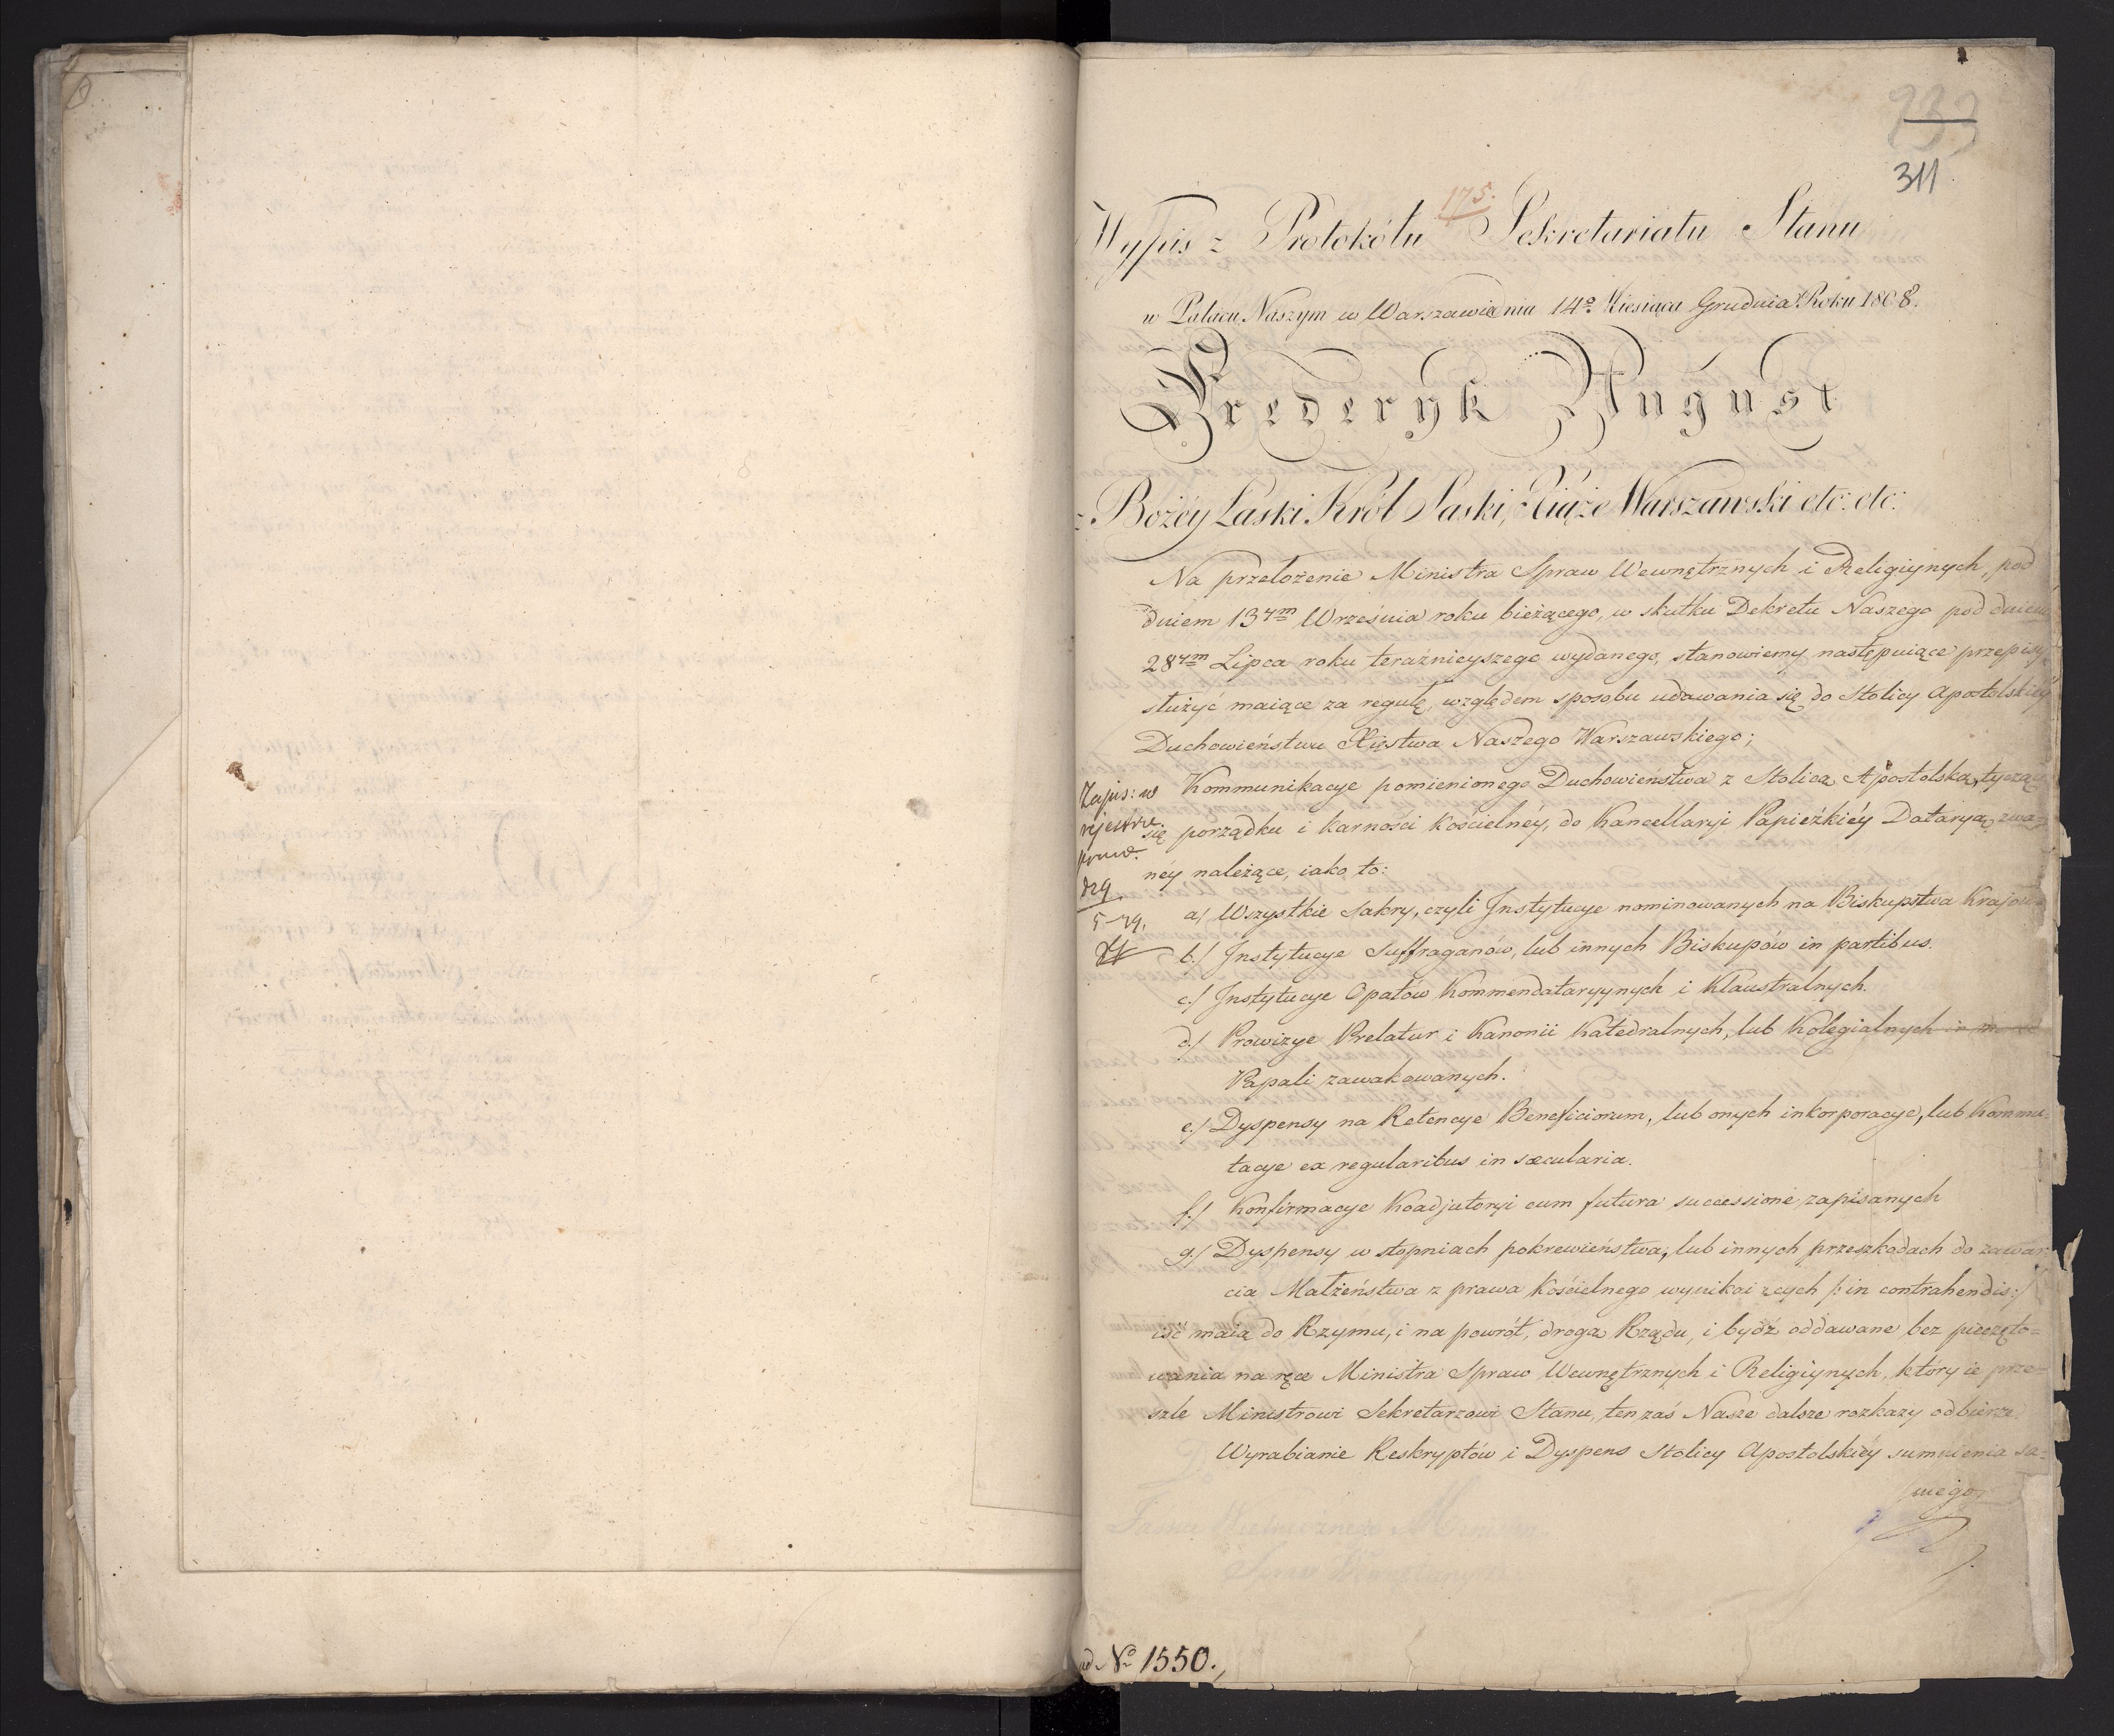 311
175.
Wypis z Protokółu Sekretariatu Stanu
w Pałacu Naszym w Warszawie dnia 14º Miesiąca Grudnia Roku 1808.
Frederyk August
z Bożéy Łaski Król Saski, Xiąże Warszawski etc: etc:
Na przełożenie Ministra Spraw Wewnętrznych i Religiynych, pod
dniem 13tym Września roku bieżącego, w skutku Dekretu Naszego pod dniem
28tym Lipca roku teraźnieyszego wydanego, stanowiemy następuiące przepisy,
służyć maiące za regułę, względem sposobu udawania się do Stolicy Apostolskiéy
Duchowieństwu Xięstwa Naszego Warszawskiego;
Kommunikacye pomienionego Duchowieństwa z Stolicą Apostolską, tyczące
się porządku i karności kościelnéy, do Kancellaryi Papiézkiéy Dataryą zwa=
néy należące, iako to:
Zapis: w
rejestrze
5
a/ Wszystkie Sakry, czyli Instytucye nominowanych na Biskupstwa Krajowe
b./ Instytucye Suffraganów, lub innych Biskupów in partibus.
c./ Instytucye Opatów Kommendataryynych i Klaustralnych.
d./ Prowizye Prelatur i Kanonii Katedralnych, lub Kolegialnych in mense
Papali zawakowanych.
e./ Dyspensy na Retencye Beneficiorum, lub onych inkorporacye, lub Kommu=
tacye ex regularibus in sæcularia.
f./ Konfirmacye Koadjutoryi cum futura successione zapisanych
g./ Dyspensy w stopniach pokrewieństwa, lub innych przeszkodach do zawar=
cia Małżeństwa z prawa Kościelnego wynikaiących /: in contrahendis :/
iść maią do Rzymu, i na powrót, drogą Rządu, i bydź oddawane bez pieczęto=
wania na ręce Ministra Spraw Wewnętrznych i Religiynych, który ie prze=
szle Ministrowi Sekretarzowi Stanu, ten zaś Nasze dalsze rozkazy odbierze.
Wyrabianie Reskryptów i Dyspens Stolicy Apostolskiéy sumnienia sa=
mego
ad Nº 1550.